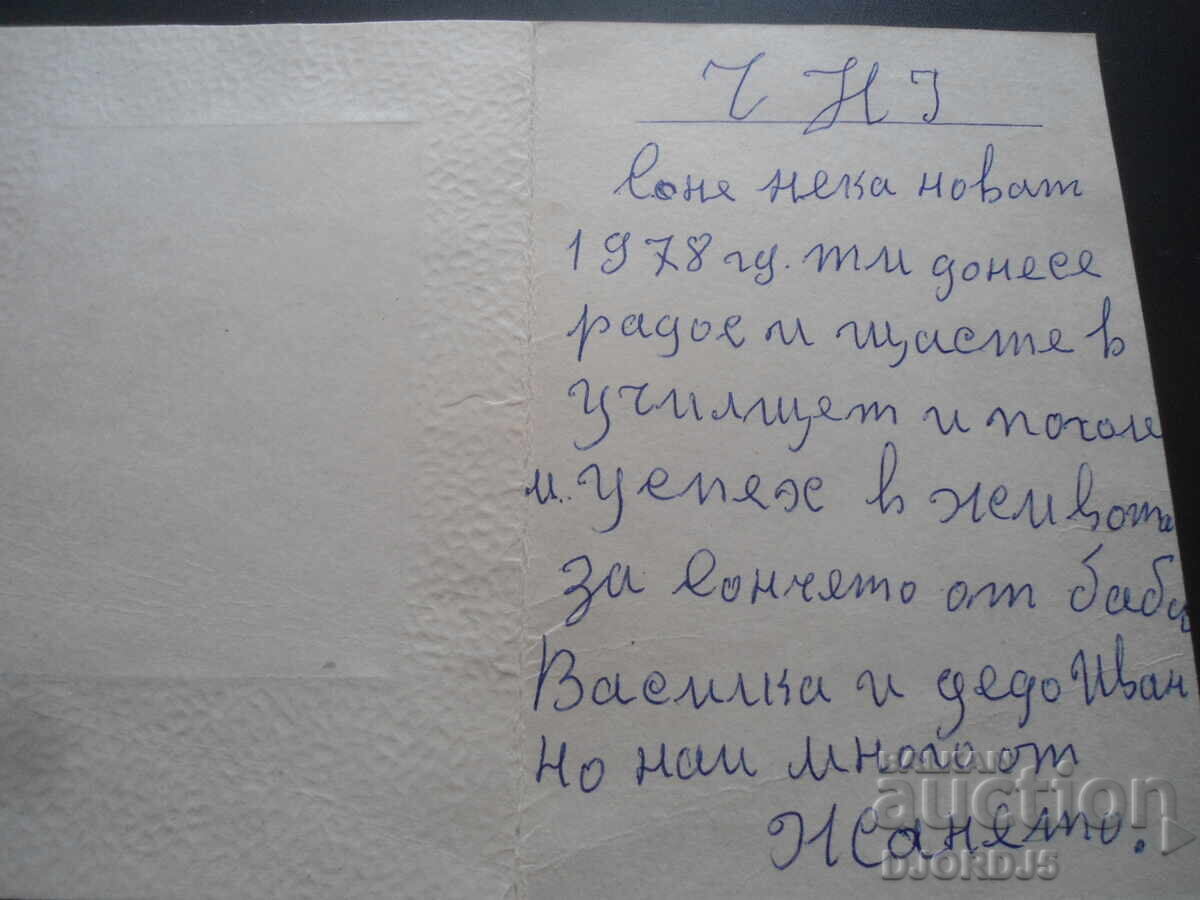 Ч Н Г
Соне нека новат
1978 гд. ти донесе
радос и щасте в
училищет и похоле
м. успех в живота
за Сончето от баба
Василка и дедо Иван
но наи много от
Жането.
BALKAN
auction
DJORDJ5